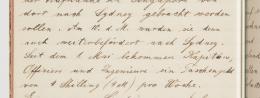 dort nach Sydney gebracht worden
sollen. Am 15. d. M. wurden sie denn
auch weiterbefördert nach Sydney.
Seit dem 1. Mai bekommen Kapitän,
Offiziere und Ingenieure ein Taschengeld
von 1 Shilling (1 M) pro Woche.